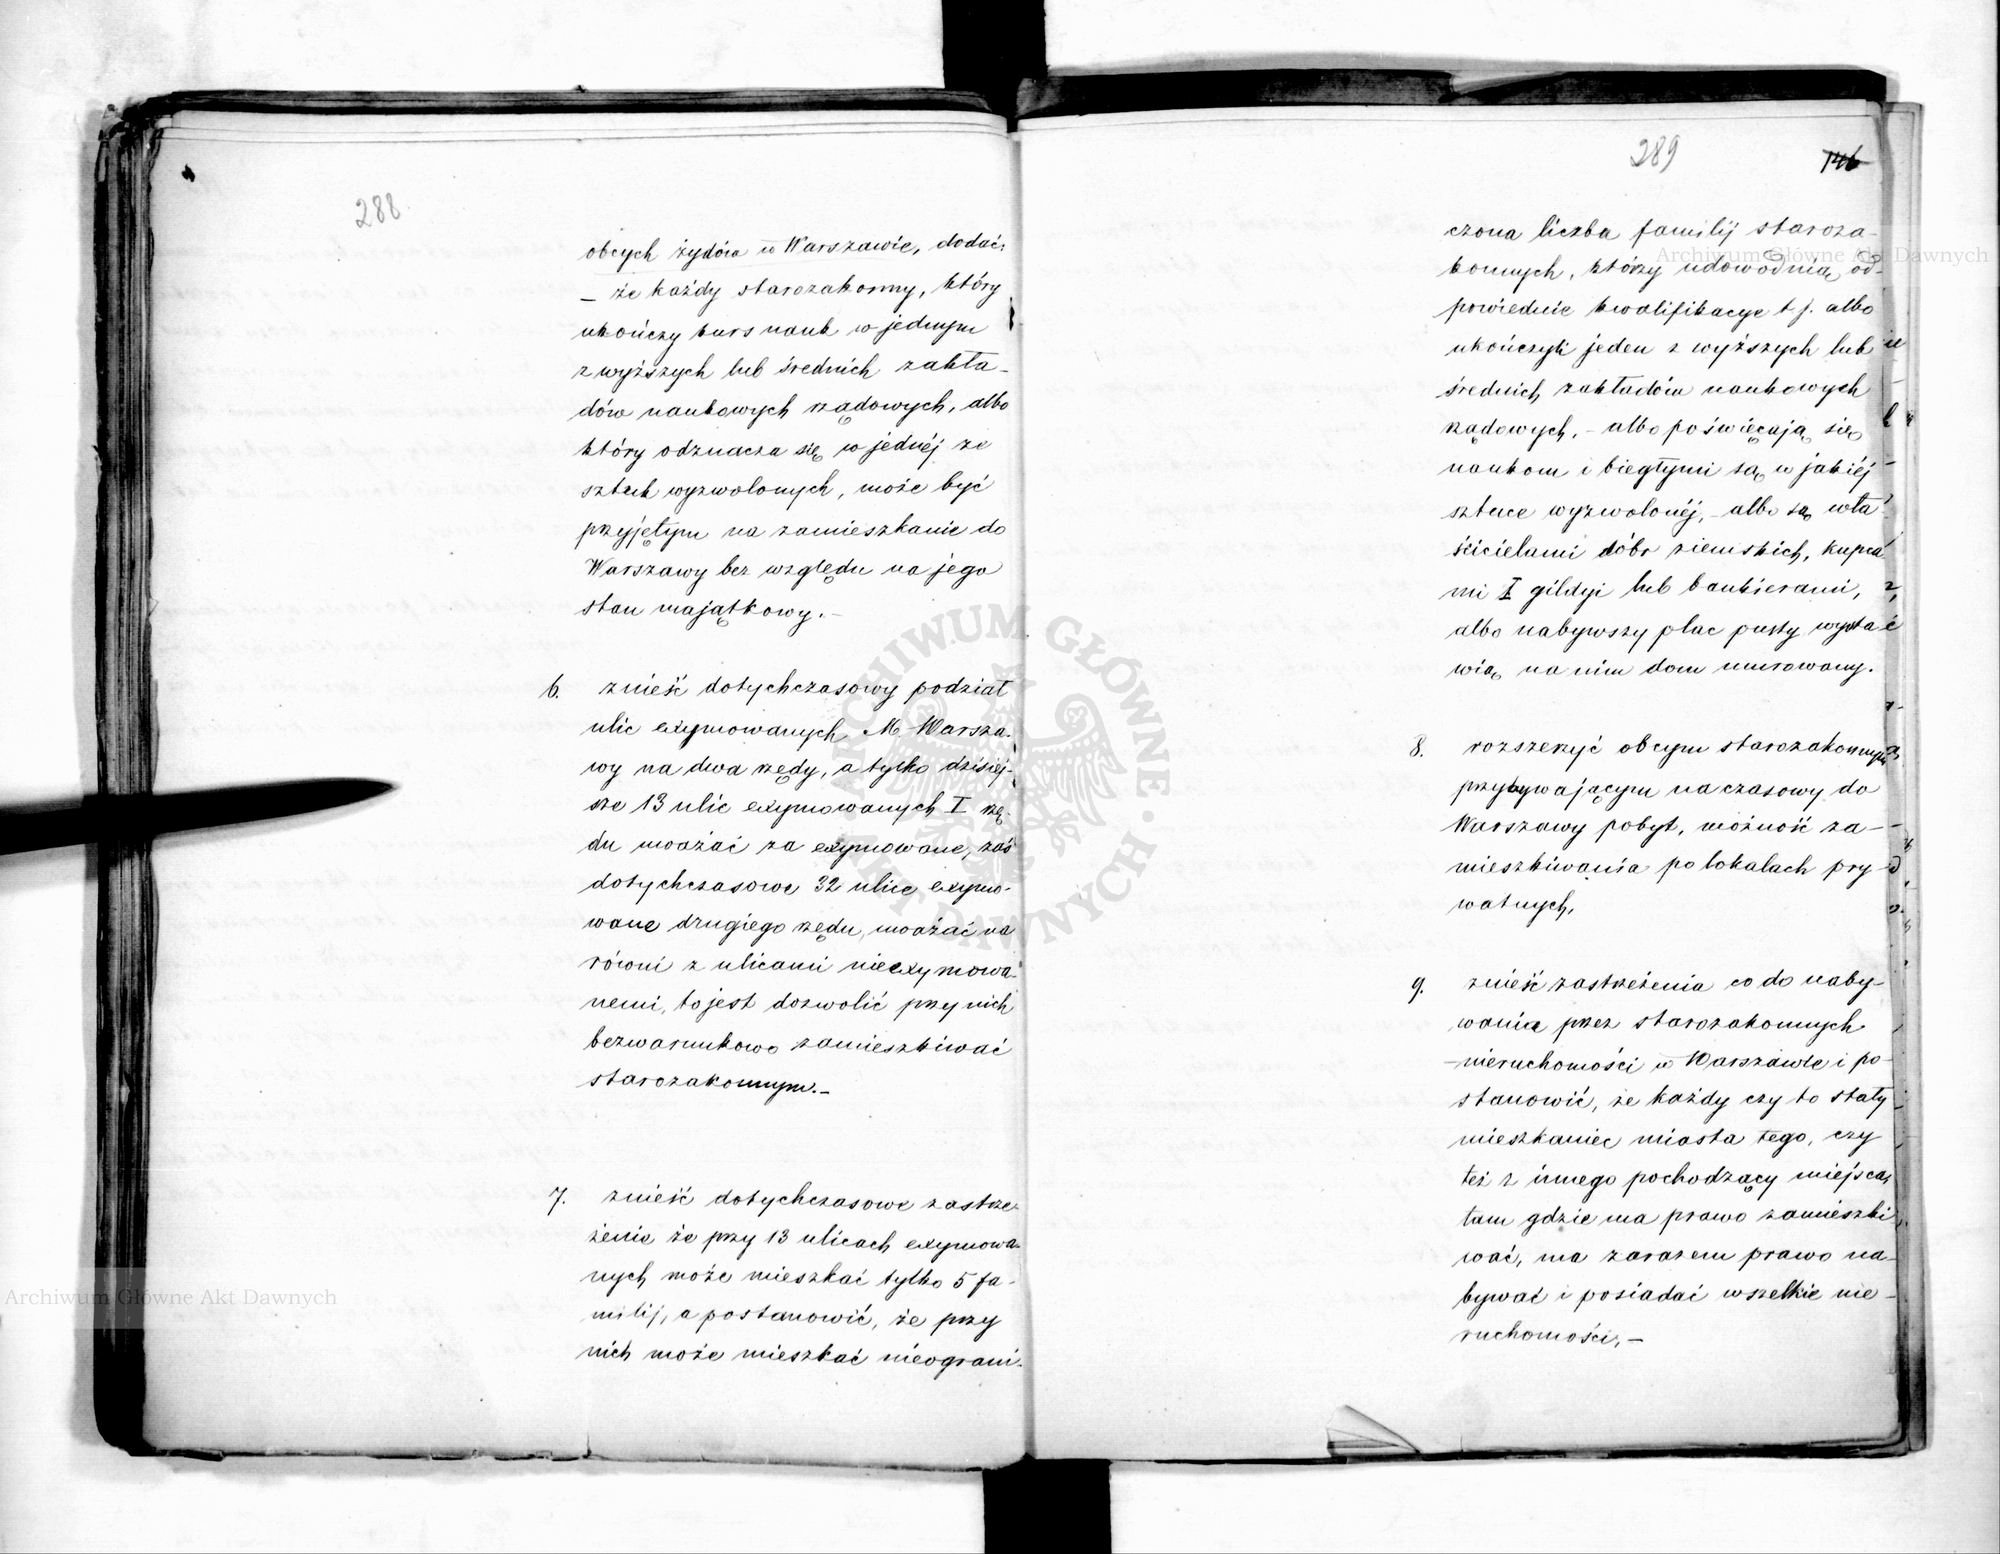 288
obcych żydów w Warszawie, dodać:
— że każdy starozakonny, który
ukończy kurs nauk w jednym
z wyższych lub średnich zakła-
dów naukowych rządowych, albo
który odznacza się w jednéj ze
sztuk wyzwolonych, może być
przyjętym na zamieszkanie do
Warszawy bez względu na jego
stan majątkowy.—
6. znieść dotychczasowy podział
ulic exymowanych M. Warsza-
wy na dwa rzędy, a tylko dzisiej-
sze 13 ulic exymowanych I rzę-
du uważać za exymowane, zaś
dotychczasowe 32 ulice exymo-
wane drugiego rzędu, uważać na
równi z ulicami nieexymowa-
nemi, to jest dozwolić przy nich
bezwarunkowo zamieszkiwać
starozakonnym.—
7. znieść dotychczasowe zastrze-
żenie że przy 13 ulicach exymowa-
nych może mieszkać tylko 5 fa-
milij, a postanowić, że przy
nich może mieszkać nieograni-
289
146
czona liczba familij staroza-
konnych, którzy udowodnią od-
powiednie kwalifikacye t j. albo
ukończyli jeden z wyższych lub
średnich zakładów naukowych
rządowych, - albo poświęcają się
naukom i biegłymi są w jakiéj
sztuce wyzwolonéj, - albo są wła-
ścicielami dóbr ziemskich, kupca-
mi I gildyi lub bankierami,
albo nabywszy plac pusty wysta-
wią na nim dom murowany.
8. rozszerzyć obcym starozakonnym
przybywającym na czasowy do
Warszawy pobyt, możność za-
mieszkiwania po lokalach pry-
watnych,
9. znieść zastrzeżenia co do naby-
wania przez starozakonnych
nieruchomości w Warszawie i po-
stanowić, że każdy czy to stały
mieszkaniec miasta tego, czy
też z innego pochodzący miejsca,
tam gdzie ma prawo zamieszki-
wać, ma zarazem prawo na-
bywać i posiadać wszelkie nie-
ruchomości,—
Archiwum Główne Akt Dawnych
Archiwum Główne Akt Dawnych
ARCHIWUM GŁÓWNE AKT DAWNYCH